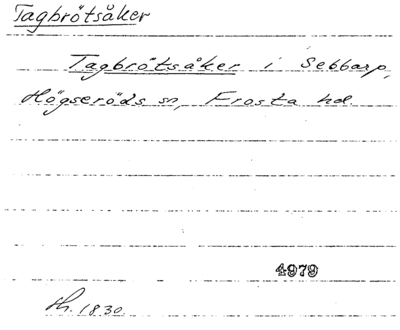 Tagbrötsåker
Tagbrötsåker i Sebbarp,
Högseröds sn, Frosta hd.
4979
1830.